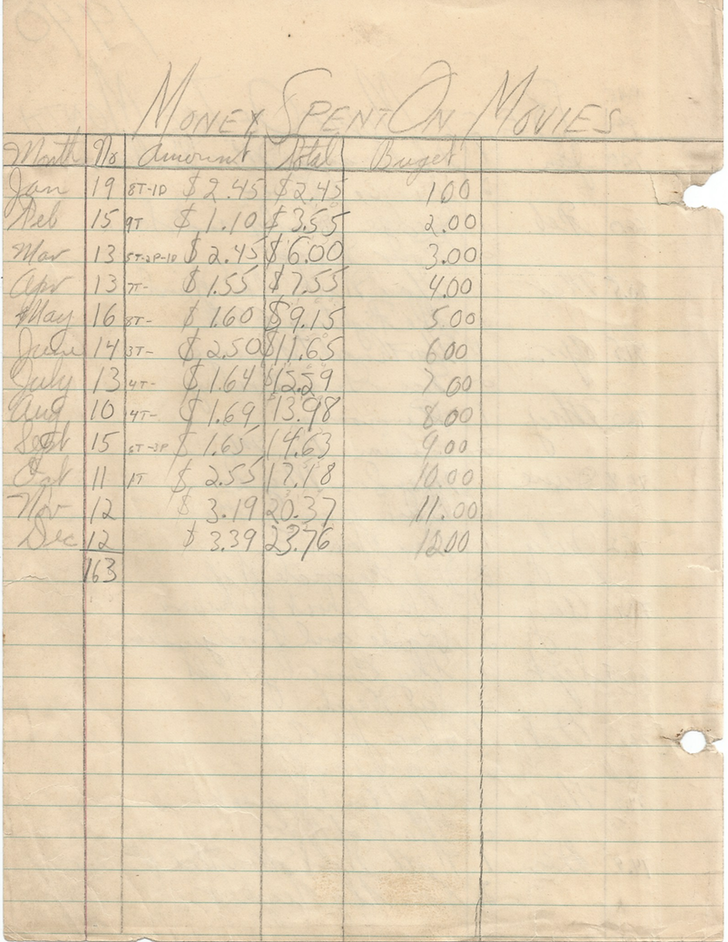 MONEY SPENT ON MOVIES
Month No Amount Total Buget
Jan 19 8T-1D $2.45 $2.45 1.00
Feb 15 9T $1.10 $3.55 2.00
Mar 13 5T-2P-1D $2.45 $6.00 3.00
Apr 13 7T- $1.55 $7.55 4.00
May 16 8T- $1.60 $9.15 5.00
June 14 3T- $2.50 $11.65 6.00
July 13 4T- $1.64 $12.29 7.00
Aug 10 4T- $1.69 13.98 8.00
Sept 15 5T-2P $1.65 14.63 9.00
Oct 11 1T $2.55 17.18 10.00
Nov 12 $3.19 20.37 11.00
Dec 12 $3.39 23.76 12.00
163